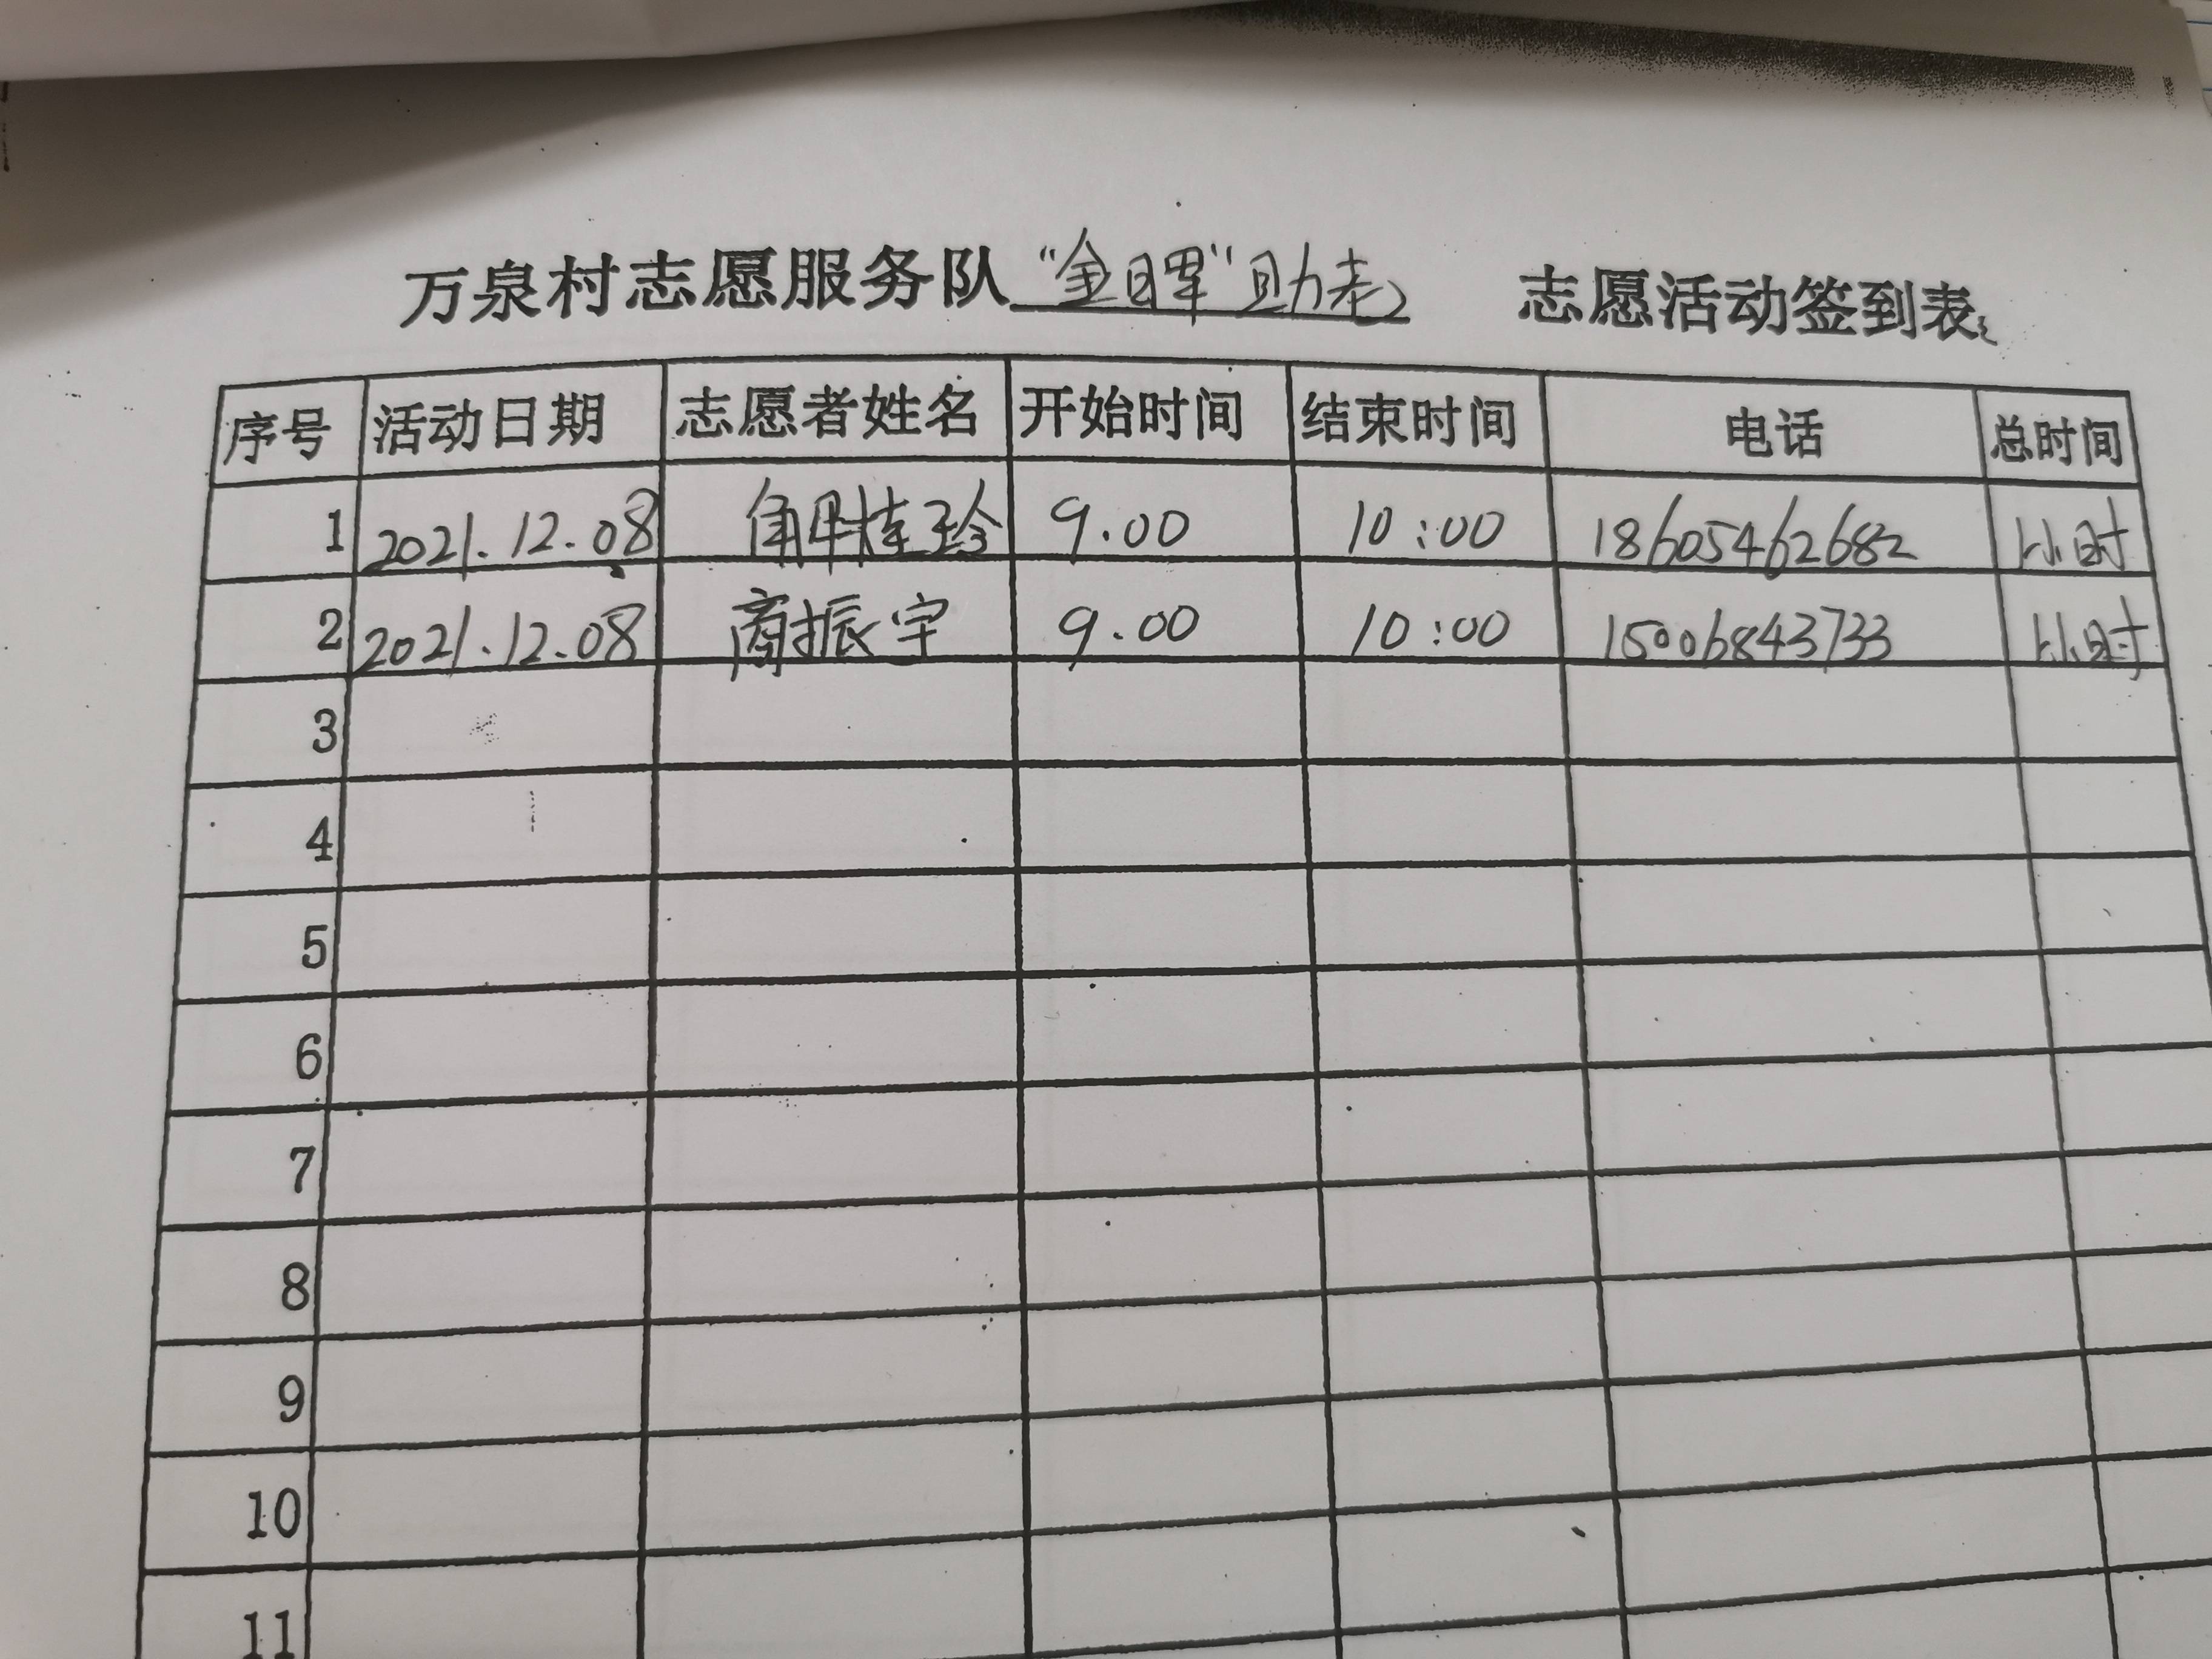 万泉村志愿服务队 “金晖”助老 志愿活动签到表
序号 活动日期 志愿者姓名 开始时间 结束时间 电话 总时间
1 2021.12.08 桂珍 9.00 10:00 18605462682 1小时
2 2021.12.08 商振宇 9.00 10:00 15006843733 1小时
3
4
5
6
7
8
9
10
11